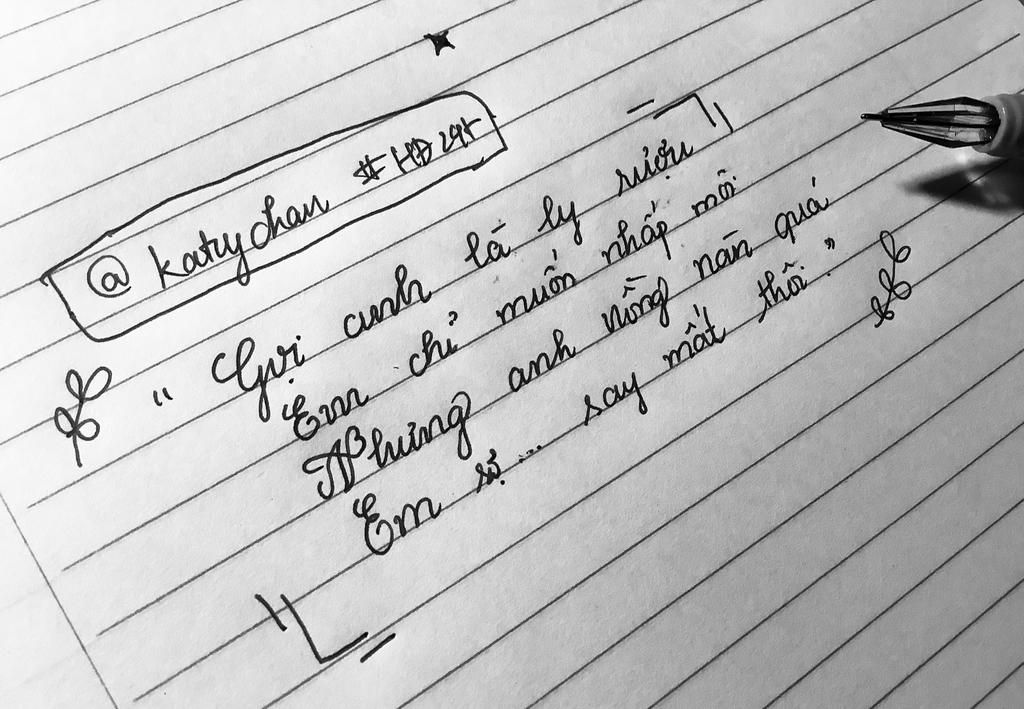 @ katrychan #HD295
" Gọi anh là ly rượu
Em chỉ muốn nhấp môi
Nhưng anh nồng nàn quá
Em sợ... say mất thôi "